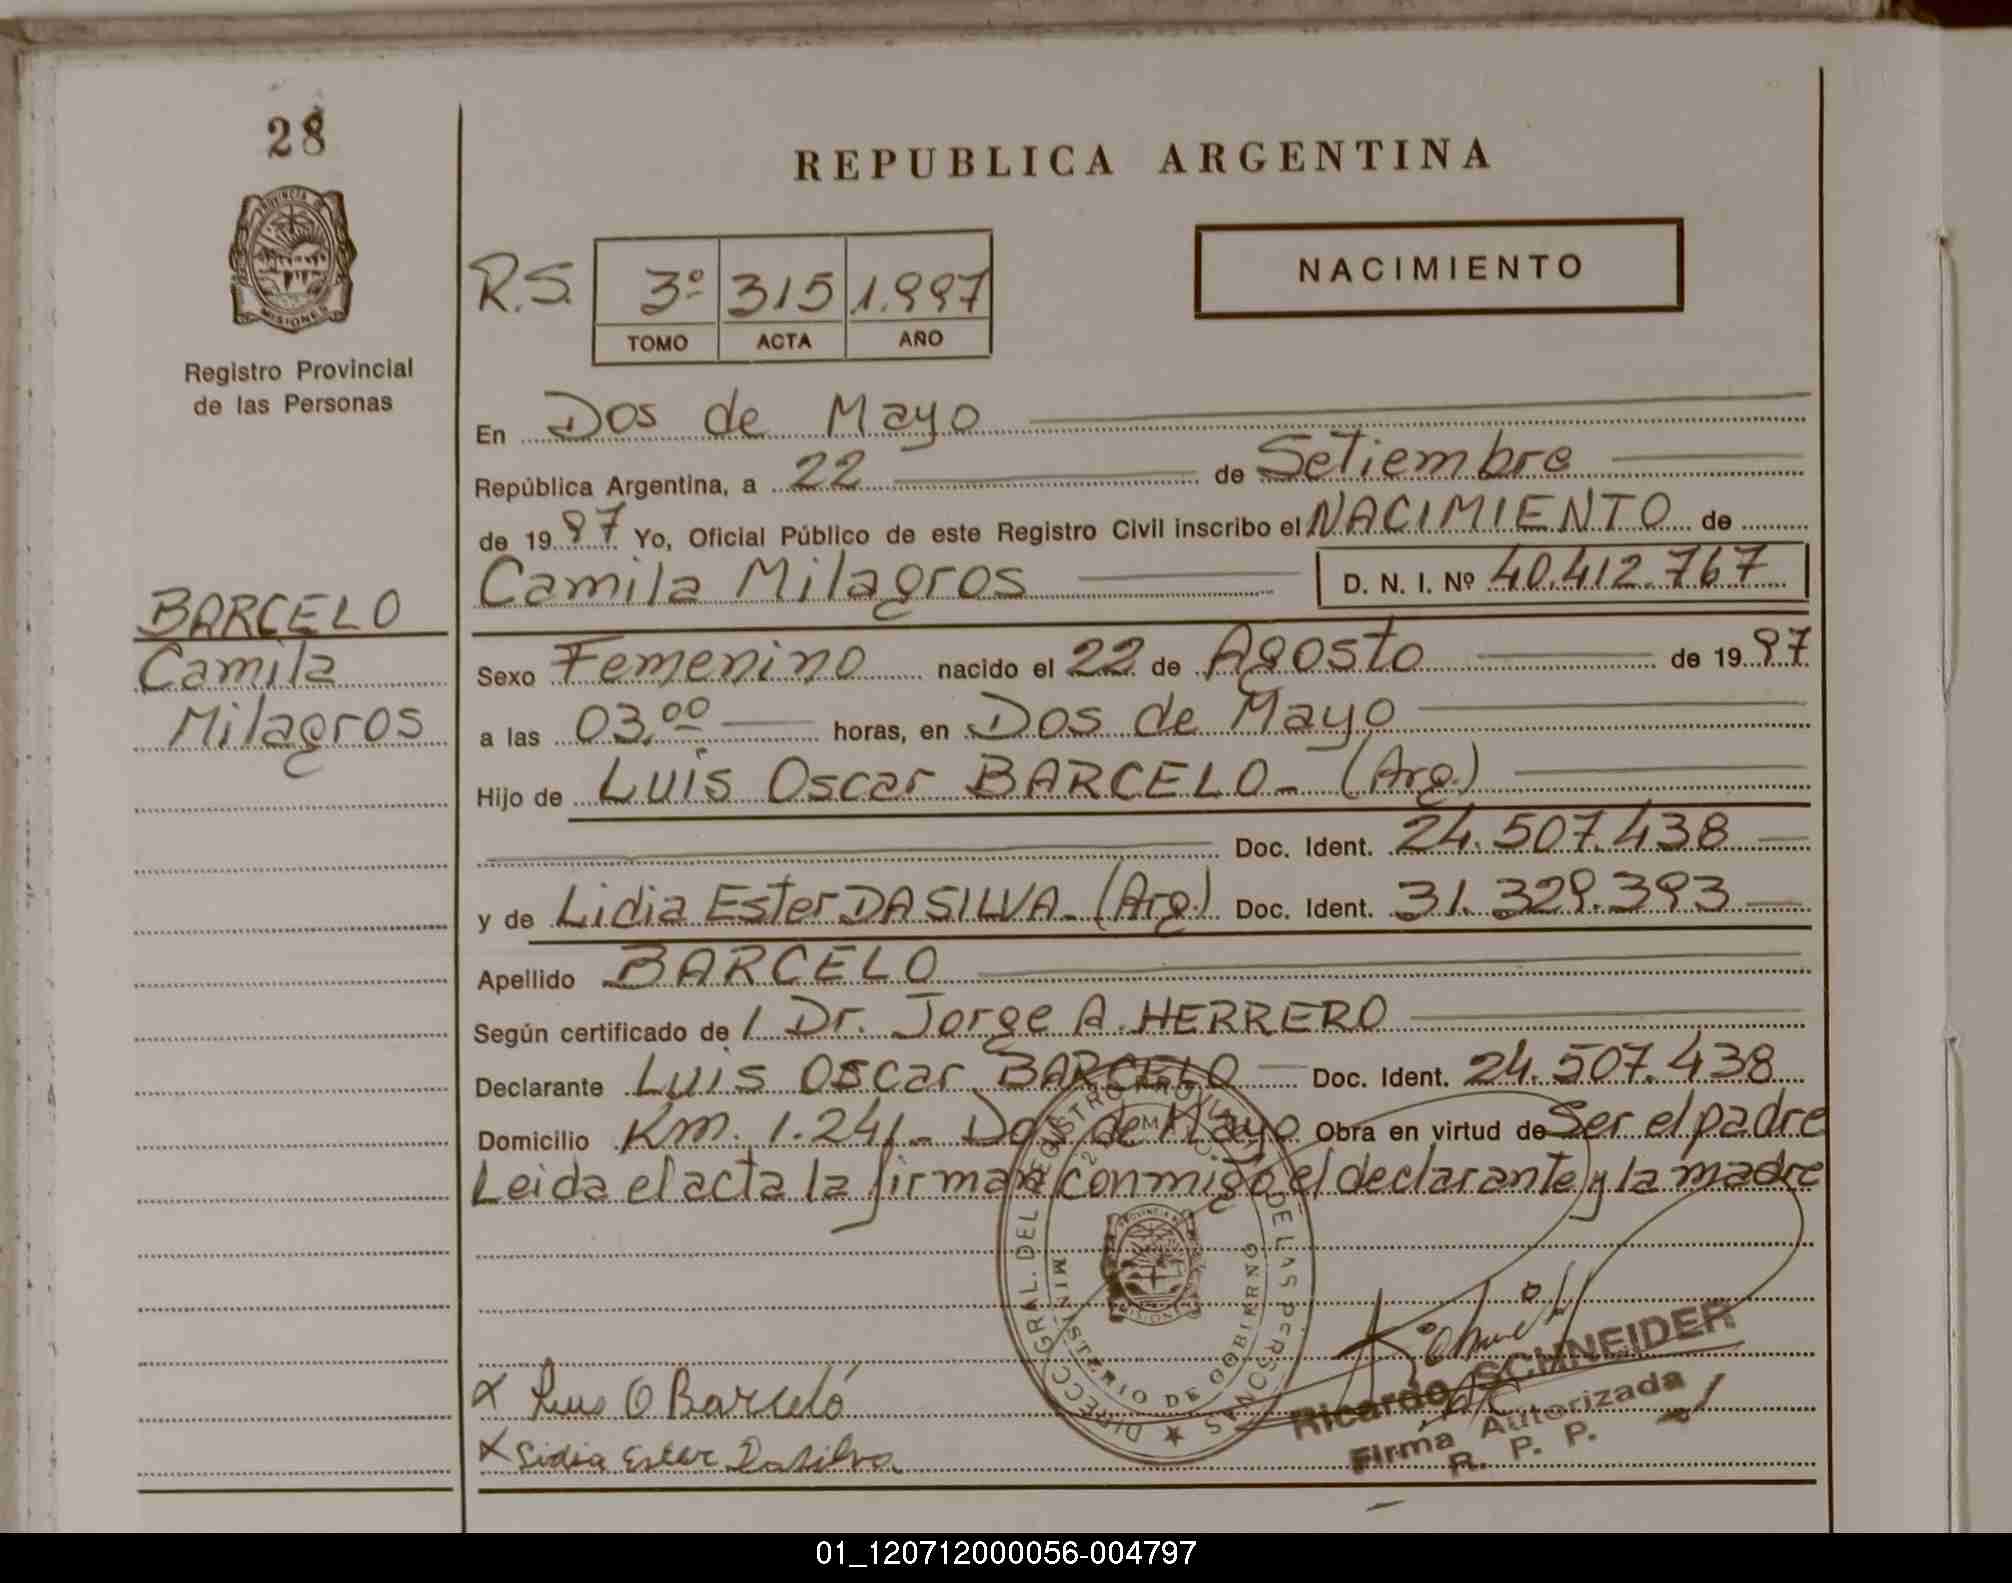 28
REPUBLICA ARGENTINA
PROVINCIA DE
MISIONES
NACIMIENTO
R.S. 3º 315 1.997
TOMO ACTA AÑO
Registro Provincial
de las Personas
En Dos de Mayo
República Argentina, a 22 de Setiembre
de 1997 Yo, Oficial Público de este Registro Civil inscribo el NACIMIENTO de
Camila Milagros D. N. I. Nº 40.412.767
BARCELO
Camila
Milagros
Sexo Femenino nacido el 22 de Agosto de 1997
a las 03.00 horas, en Dos de Mayo
Hijo de Luis Oscar BARCELO - (Arg.)
Doc. Ident. 24.507.438
y de Lidia Ester DA SILVA - (Arg.) Doc. Ident. 31.329.393
Apellido BARCELO
Según certificado de / Dr. Jorge A. HERRERO
Declarante Luis Oscar BARCELO Doc. Ident. 24.507.438
Domicilio Km. 1.241 - Dos de Mayo Obra en virtud de Ser el padre
Leida el acta la firman conmigo el declarante y la madre
DIRECC. GRAL. DEL REGISTRO PROVINCIAL DE LAS PERSONAS
MINISTERIO DE GOBIERNO
x Luis O Barceló
x Lidia Ester Da silva
Ricardo SCHNEIDER
Firma Autorizada
R. P. P.
01_120712000056-004797